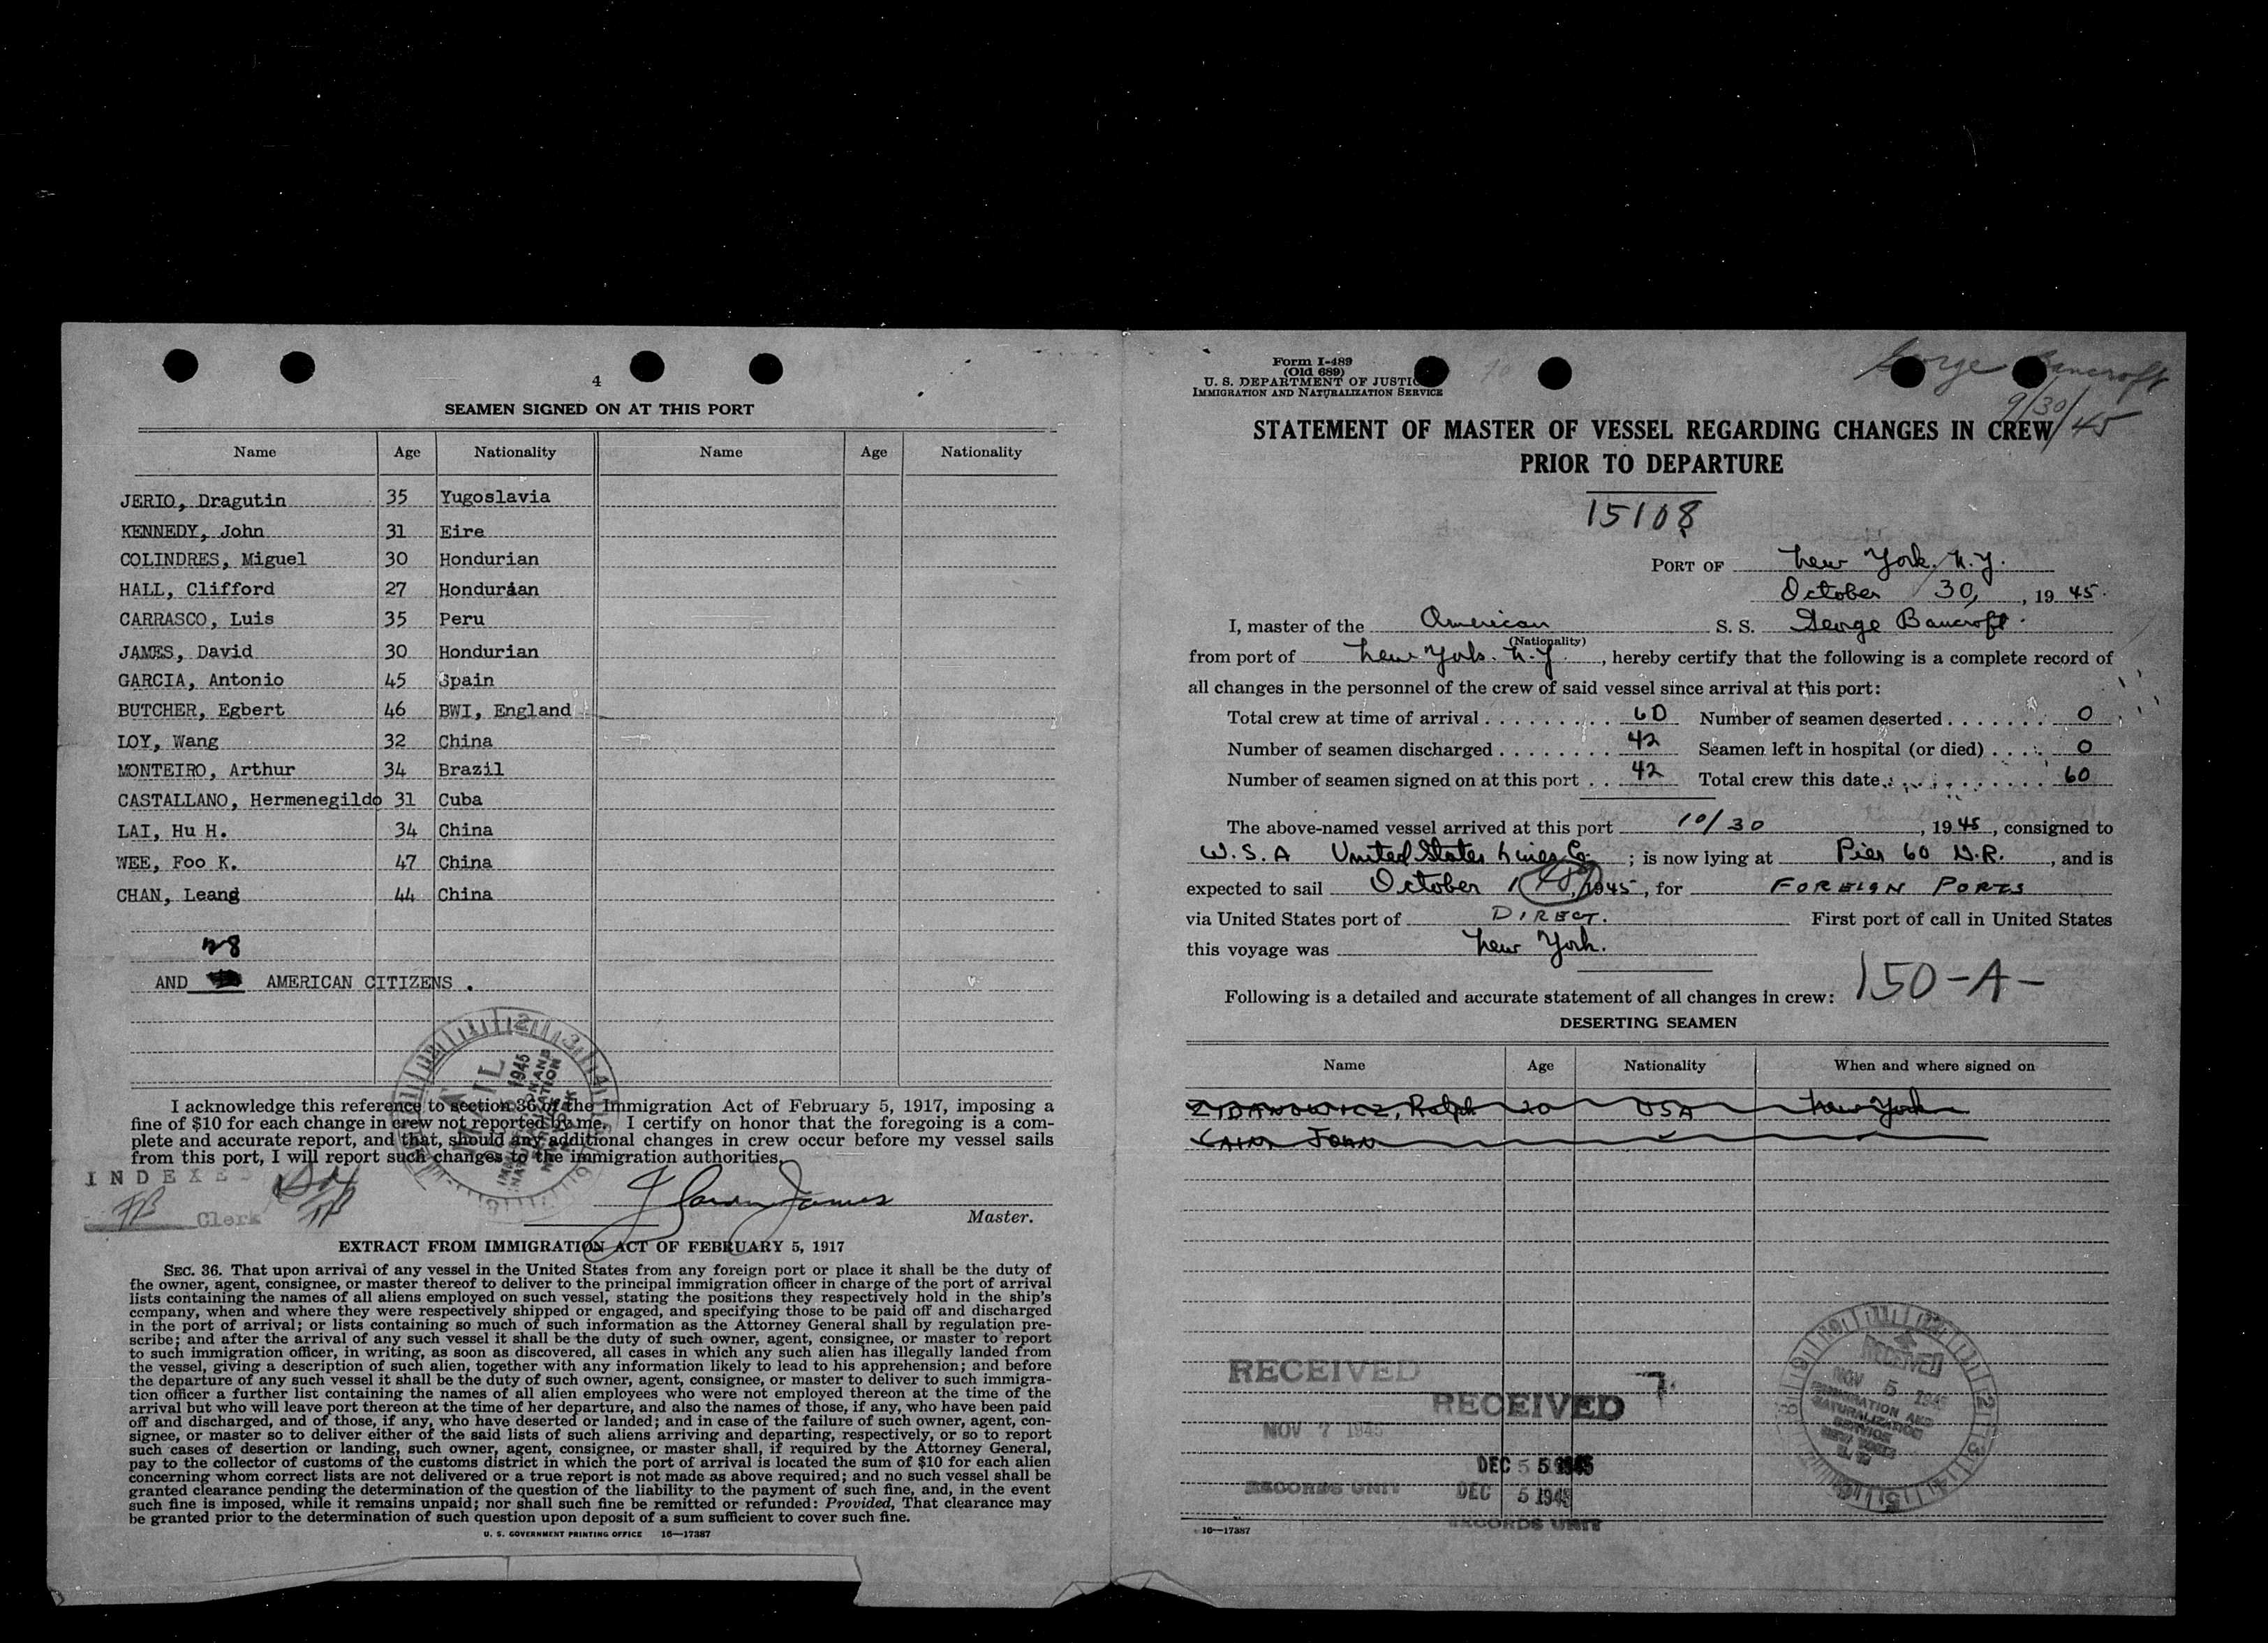 4
SEAMEN SIGNED ON AT THIS PORT
Name Age Nationality Name Age Nationality
JERIO, Dragutin 35 Yugoslavia
KENNEDY, John 31 Eire
COLINDRES, Miguel 30 Hondurian
HALL, Clifford 27 Hondurian
CARRASCO, Luis 35 Peru
JAMES, David 30 Hondurian
GARCIA, Antonio 45 Spain
BUTCHER, Egbert 46 BWI, England
LOY, Wang 32 China
MONTEIRO, Arthur 34 Brazil
CASTALLANO, Hermenegildo 31 Cuba
LAI, Hu H. 34 China
WEE, Foo K. 47 China
CHAN, Leang 44 China
28
AND AMERICAN CITIZENS .
I acknowledge this reference to section 36 of the Immigration Act of February 5, 1917, imposing a
fine of $10 for each change in crew not reported by me. I certify on honor that the foregoing is a com-
plete and accurate report, and that, should any additional changes in crew occur before my vessel sails
from this port, I will report such changes to the immigration authorities.
INDEXED
Clerk
James
Master.
EXTRACT FROM IMMIGRATION ACT OF FEBRUARY 5, 1917
SEC. 36. That upon arrival of any vessel in the United States from any foreign port or place it shall be the duty of
the owner, agent, consignee, or master thereof to deliver to the principal immigration officer in charge of the port of arrival
lists containing the names of all aliens employed on such vessel, stating the positions they respectively hold in the ship's
company, when and where they were respectively shipped or engaged, and specifying those to be paid off and discharged
in the port of arrival; or lists containing so much of such information as the Attorney General shall by regulation pre-
scribe; and after the arrival of any such vessel it shall be the duty of such owner, agent, consignee, or master to report
to such immigration officer, in writing, as soon as discovered, all cases in which any such alien has illegally landed from
the vessel, giving a description of such alien, together with any information likely to lead to his apprehension; and before
the departure of any such vessel it shall be the duty of such owner, agent, consignee, or master to deliver to such immigra-
tion officer a further list containing the names of all alien employees who were not employed thereon at the time of the
arrival but who will leave port thereon at the time of her departure, and also the names of those, if any, who have been paid
off and discharged, and of those, if any, who have deserted or landed; and in case of the failure of such owner, agent, con-
signee, or master so to deliver either of the said lists of such aliens arriving and departing, respectively, or so to report
such cases of desertion or landing, such owner, agent, consignee, or master shall, if required by the Attorney General,
pay to the collector of customs of the customs district in which the port of arrival is located the sum of $10 for each alien
concerning whom correct lists are not delivered or a true report is not made as above required; and no such vessel shall be
granted clearance pending the determination of the question of the liability to the payment of such fine, and, in the event
such fine is imposed, while it remains unpaid; nor shall such fine be remitted or refunded: Provided, That clearance may
be granted prior to the determination of such question upon deposit of a sum sufficient to cover such fine.
U. S. GOVERNMENT PRINTING OFFICE 16—17387
Form I-489
(Old 689)
U. S. DEPARTMENT OF JUSTICE
IMMIGRATION AND NATURALIZATION SERVICE
George Bancroft
9/30/45
STATEMENT OF MASTER OF VESSEL REGARDING CHANGES IN CREW
PRIOR TO DEPARTURE
15108
PORT OF New York, N.Y.
October 30, , 19 45.
I, master of the American S. S. George Bancroft.
(Nationality)
from port of New York. N.Y. , hereby certify that the following is a complete record of
all changes in the personnel of the crew of said vessel since arrival at this port:
Total crew at time of arrival 60 Number of seamen deserted 0
Number of seamen discharged 42 Seamen left in hospital (or died) 0
Number of seamen signed on at this port 42 Total crew this date 60
The above-named vessel arrived at this port 10/30 , 1945, consigned to
W.S.A United States Lines Co. ; is now lying at Pier 60 N.R. , and is
expected to sail October , 1945, for FOREIGN PORTS
via United States port of DIRECT. First port of call in United States
this voyage was New York.
150-A-
Following is a detailed and accurate statement of all changes in crew:
DESERTING SEAMEN
Name Age Nationality When and where signed on
Ralph 20 USA New York
CAIN, JOHN
RECEIVED
NOV 7 1945
RECORDS UNIT
RECEIVED
7.
DEC 5 1945
DEC 5 1945
RECORDS UNIT
RECEIVED
NOV 5 1945
IMMIGRATION AND
NATURALIZATION
SERVICE
NEW YORK
N. Y.
16—17387